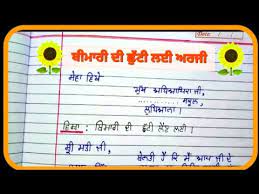 Date
ਬੀਮਾਰੀ ਦੀ ਛੁੱਟੀ ਲਈ ਅਰਜੀ
ਸੇਵਾ ਵਿਖੇ
ਮੁੱਖ ਅਧਿਆਪਿਕਾ ਜੀ,
ਸਕੂਲ,
ਲੁਧਿਆਣਾ।
ਵਿਸ਼ਾ: ਬਿਮਾਰੀ ਦੀ ਛੁੱਟੀ ਲੈਣ ਲਈ।
ਸ਼੍ਰੀ ਮਤੀ ਜੀ,
ਬੇਨਤੀ ਹੈ ਕਿ ਮੈਂ ਆਪ ਜੀ ਦੇ